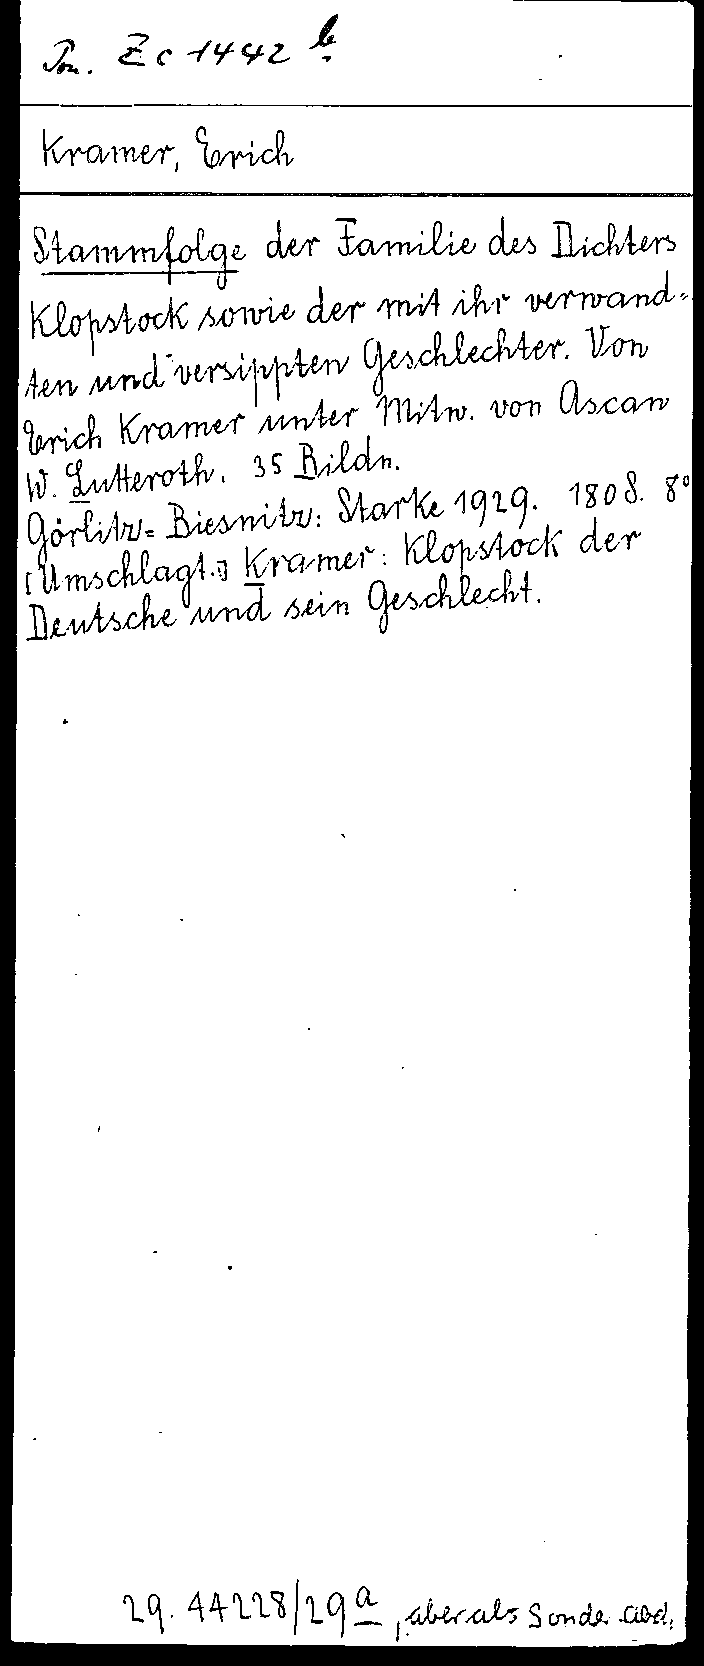 Pn. Zc 1442 b.
Kramer, Erich
Stammfolge der Familie des Dichters
Klopstock sowie der mit ihr verwand=
ten und versippten Geschlechter. Von
Erich Kramer unter Mitw. von Ascan
W. Lutteroth. 35 Bildn.
Görlitz=Biesnitz: Starke 1929. 180 S. 8°
[Umschlagt.:] Kramer: Klopstock der
Deutsche und sein Geschlecht.
29. 44228/29 a, aber als Sonder